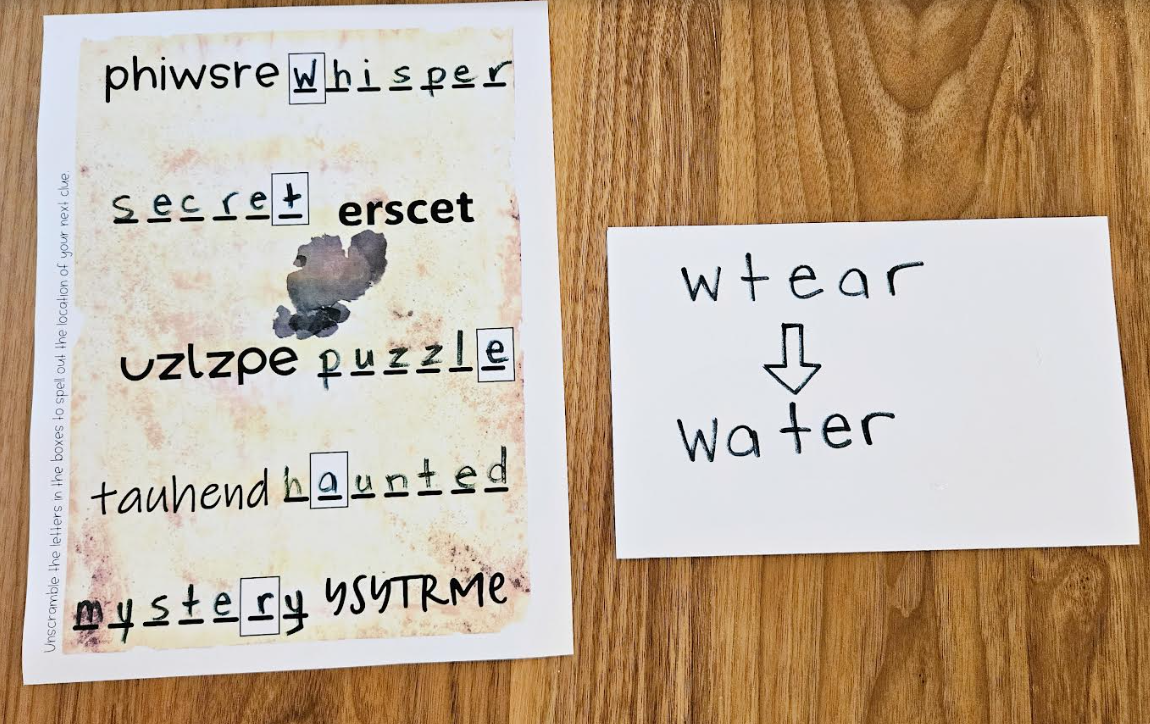 phiwsre whisper
secret erscet
uzlzpe puzzle
tauhend haunted
mystery YSYTRMe
Unscramble the letters in the boxes to spell out the location of your next clue
wtear
water